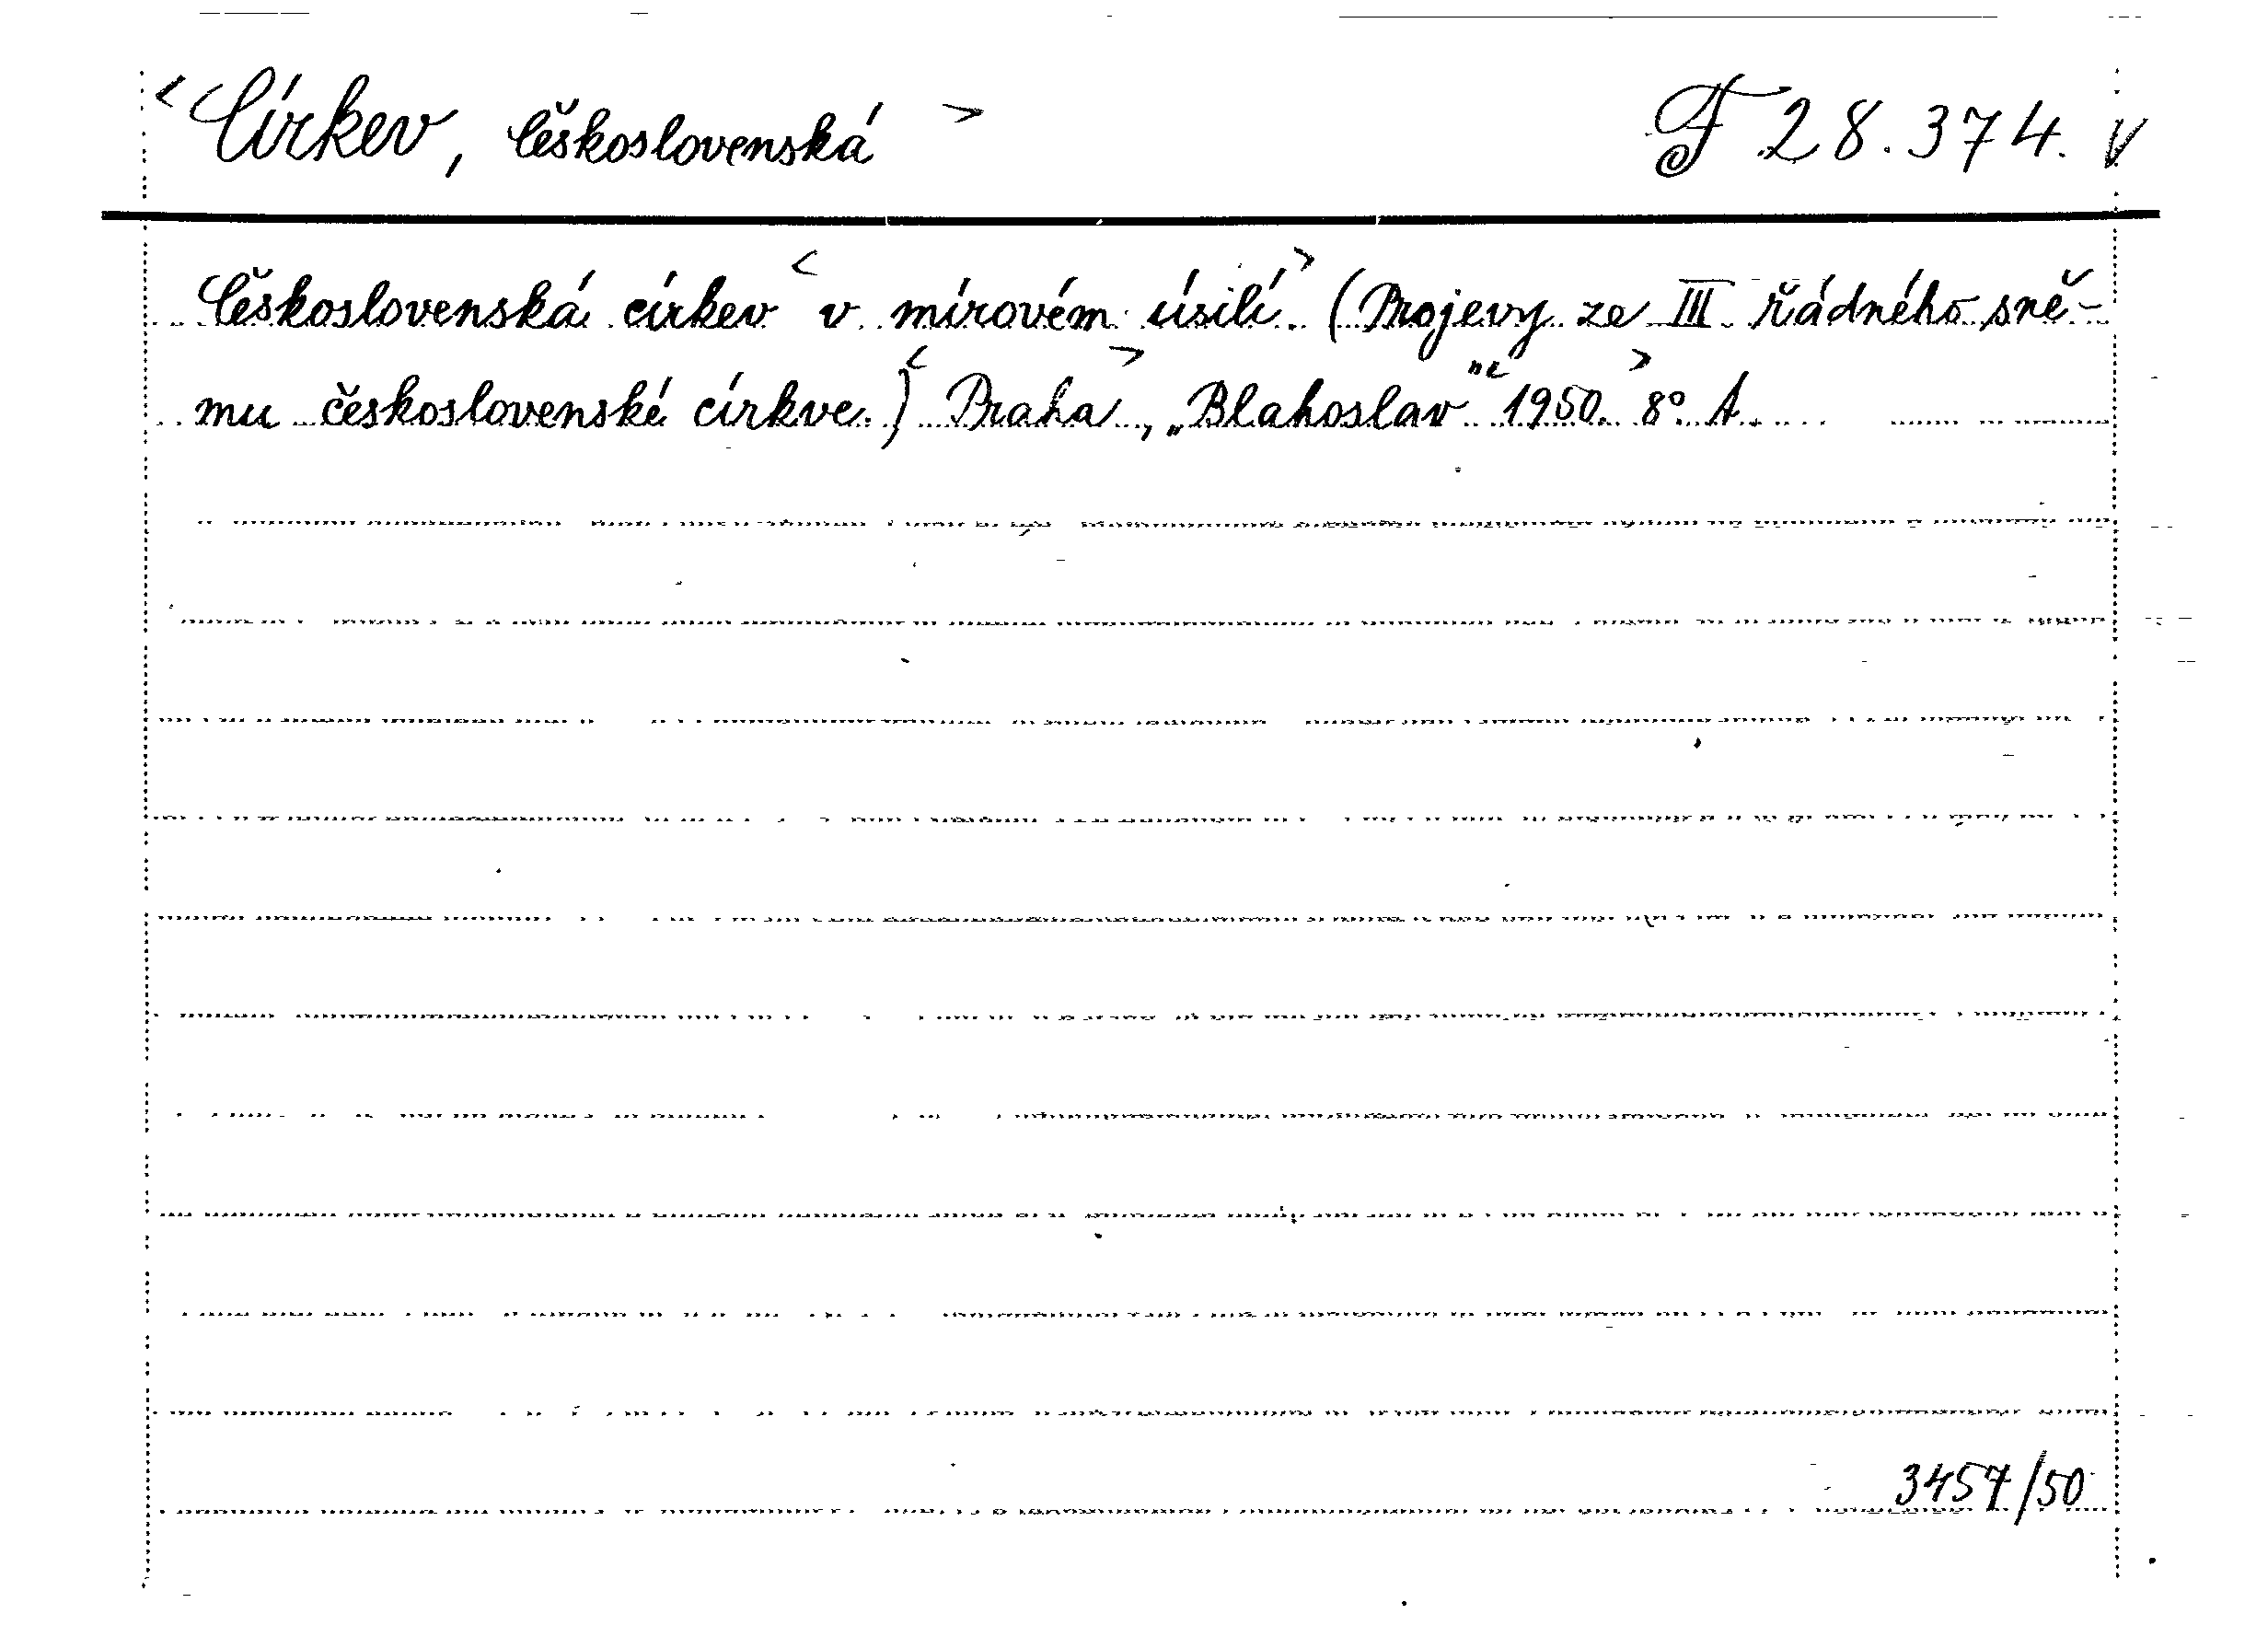 <Církev, Československá> F 28.374. V
Československá církev <v mírovém úsilí.> (Projevy ze III. řádného sně-
mu československé církve.) <Praha>, „Blahoslav" <1950.> 8° A.
3457/50